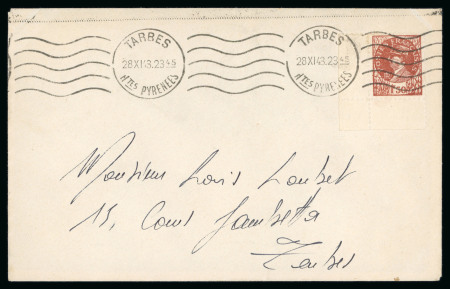 TARBES
28XI43.23 45
Htes PYRENEES
TARBES
28XI43.23 45
Htes PYRENEES
Monsieur Louis Loubet
15, Cours Gambetta
Tarbes